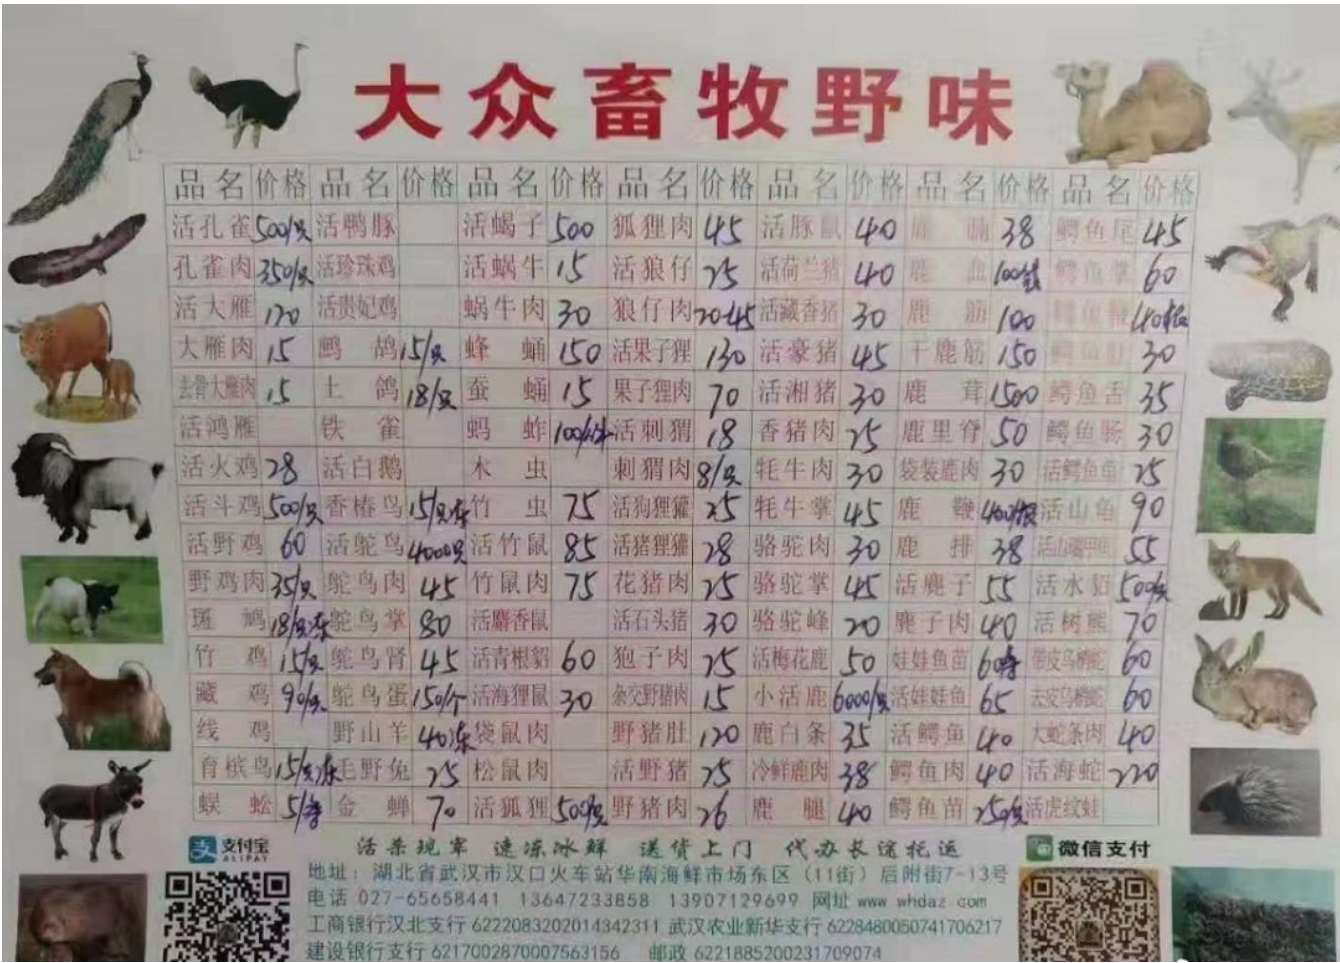 大众畜牧野味
品名 价格 品名 价格 品名 价格 品名 价格 品名 价格 品名 价格 品名 价格
活孔雀 500/只 活鸭豚 活蝎子 500 狐狸肉 45 活豚鼠 40 鹿 38 鳄鱼尾 45
孔雀肉 350/只 活珍珠鸡 活蜗牛 15 活狼仔 25 活荷兰猪 40 鹿血 100 鳄鱼掌 60
活大雁 120 活贵妃鸡 蜗牛肉 30 狼仔肉 20-45 活藏香猪 30 鹿筋 100 鳄鱼 40/根
大雁肉 15 鹧鸪 15/只 蜂蛹 150 活果子狸 130 活豪猪 45 干鹿筋 150 鳄鱼肚 30
去骨大雁肉 15 土鸽 18/只 蚕蛹 15 果子狸肉 70 活湘猪 30 鹿茸 1500 鳄鱼舌 35
活鸿雁 铁雀 蚂蚱 100/ 活刺猬 18 香猪肉 25 鹿里脊 50 鳄鱼肠 30
活火鸡 28 活白鹅 木虫 刺猬肉 8/只 牦牛肉 30 袋装鹿肉 30 活鳄鱼龟 25
活斗鸡 500/只 香椿鸟 15/只冻 竹虫 75 活狗狸獾 25 牦牛掌 45 鹿鞭 400/根 活山龟 90
活野鸡 60 活鸵鸟 4000只 活竹鼠 85 活猪狸獾 28 骆驼肉 30 鹿排 38 55
野鸡肉 35/只 鸵鸟肉 45 竹鼠肉 75 花猪肉 25 骆驼掌 45 活麂子 55 活水貂 500/只
斑鸠 18/只冻 鸵鸟掌 80 活麝香鼠 活石头猪 30 骆驼峰 20 麂子肉 40 活树熊 70
竹鸡 15/只 鸵鸟肾 45 活青根貂 60 狍子肉 25 活梅花鹿 50 娃娃鱼苗 60 带皮乌梢蛇 60
藏鸡 90/只 鸵鸟蛋 150/个 活海狸鼠 30 杂交野猪肉 15 小活鹿 6000/只 活娃娃鱼 65 去皮乌梢蛇 60
线鸡 野山羊 40冻 袋鼠肉 野猪肚 120 鹿白条 35 活鳄鱼 40 大蛇条肉 40
育槟鸟 15/只冻 毛野兔 25 松鼠肉 活野猪 25 冷鲜鹿肉 38 鳄鱼肉 40 活海蛇 220
蜈蚣 5/ 金蝉 70 活狐狸 500/只 野猪肉 26 鹿腿 40 鳄鱼苗 250/只 活虎纹蛙
支付宝 ALIPAY 活杀现宰 速冻冰鲜 送货上门 代办长途托运 微信支付
地址：湖北省武汉市汉口火车站华南海鲜市场东区（11街）后附街7-13号
电话 027-65658441 13647233858 13907129699 网址 www whdaz com
工商银行汉北支行 6222083202014342311 武汉农业新华支行 6228480050741706217
建设银行支行 6217002870007563156 邮政 6221885200231709074